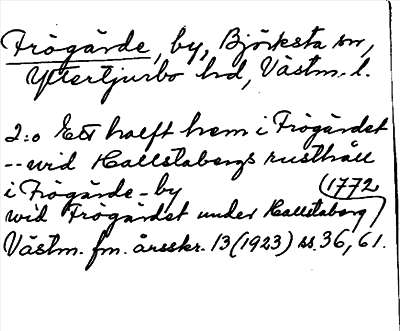 Frögärde, by, Björksta sn,
Yttertjurbo hd, Västm. l.
2:o Ett halft hem i Frögärdet
-- wid Hallstabergs rusthåll
i Frögärde-by
1772
wid Frögärdet under Hallstaberg
Västm. fm. årsskr. 13 (1923) ss. 36, 61.